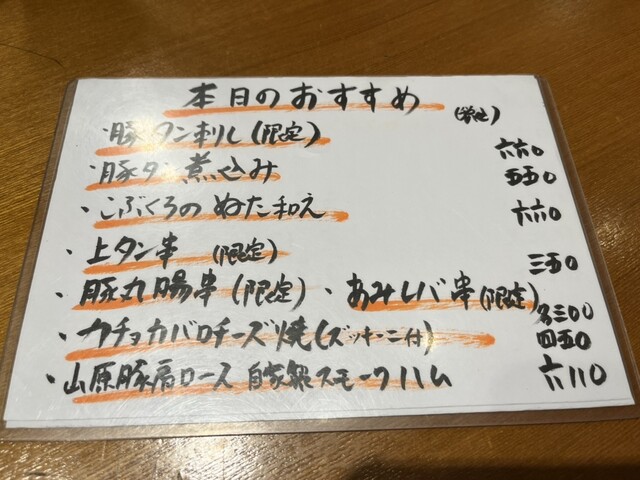 本日のおすすめ
(税込)
・豚タン刺し(限定) 六六0
・豚タン煮込み 五五0
・こぶくろのぬた和え 六六0
・上タン串 (限定) 三五0
・豚丸腸串(限定)・あみレバ串(限定) 各三00
・カチョカバロチーズ焼(ズッキーニ付) 四五0
・山原豚肩ロース 自家製スモークハム 六八0